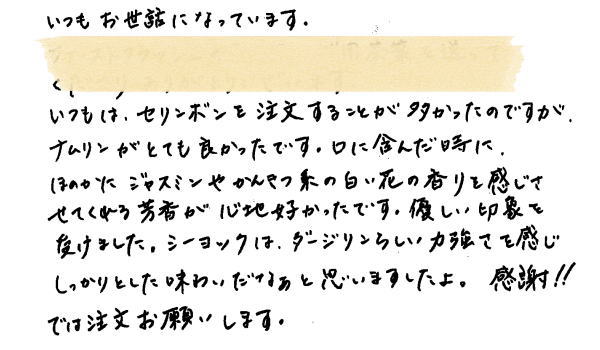 いつもお世話になっています。
いつもは、セリンボンを注文することが多かったのですが、
ナムリンがとても良かったです。口に含んだ時に、
ほのかに ジャスミンやかんきつ系の白い花の香りを感じさ
せてくれる芳香が心地好かったです。優しい印象を
受けました。シーヨックは、ダージリンらしい力強さを感じ
しっかりとした味わいだなぁと思いましたよ。 感謝!!
では注文お願いします。